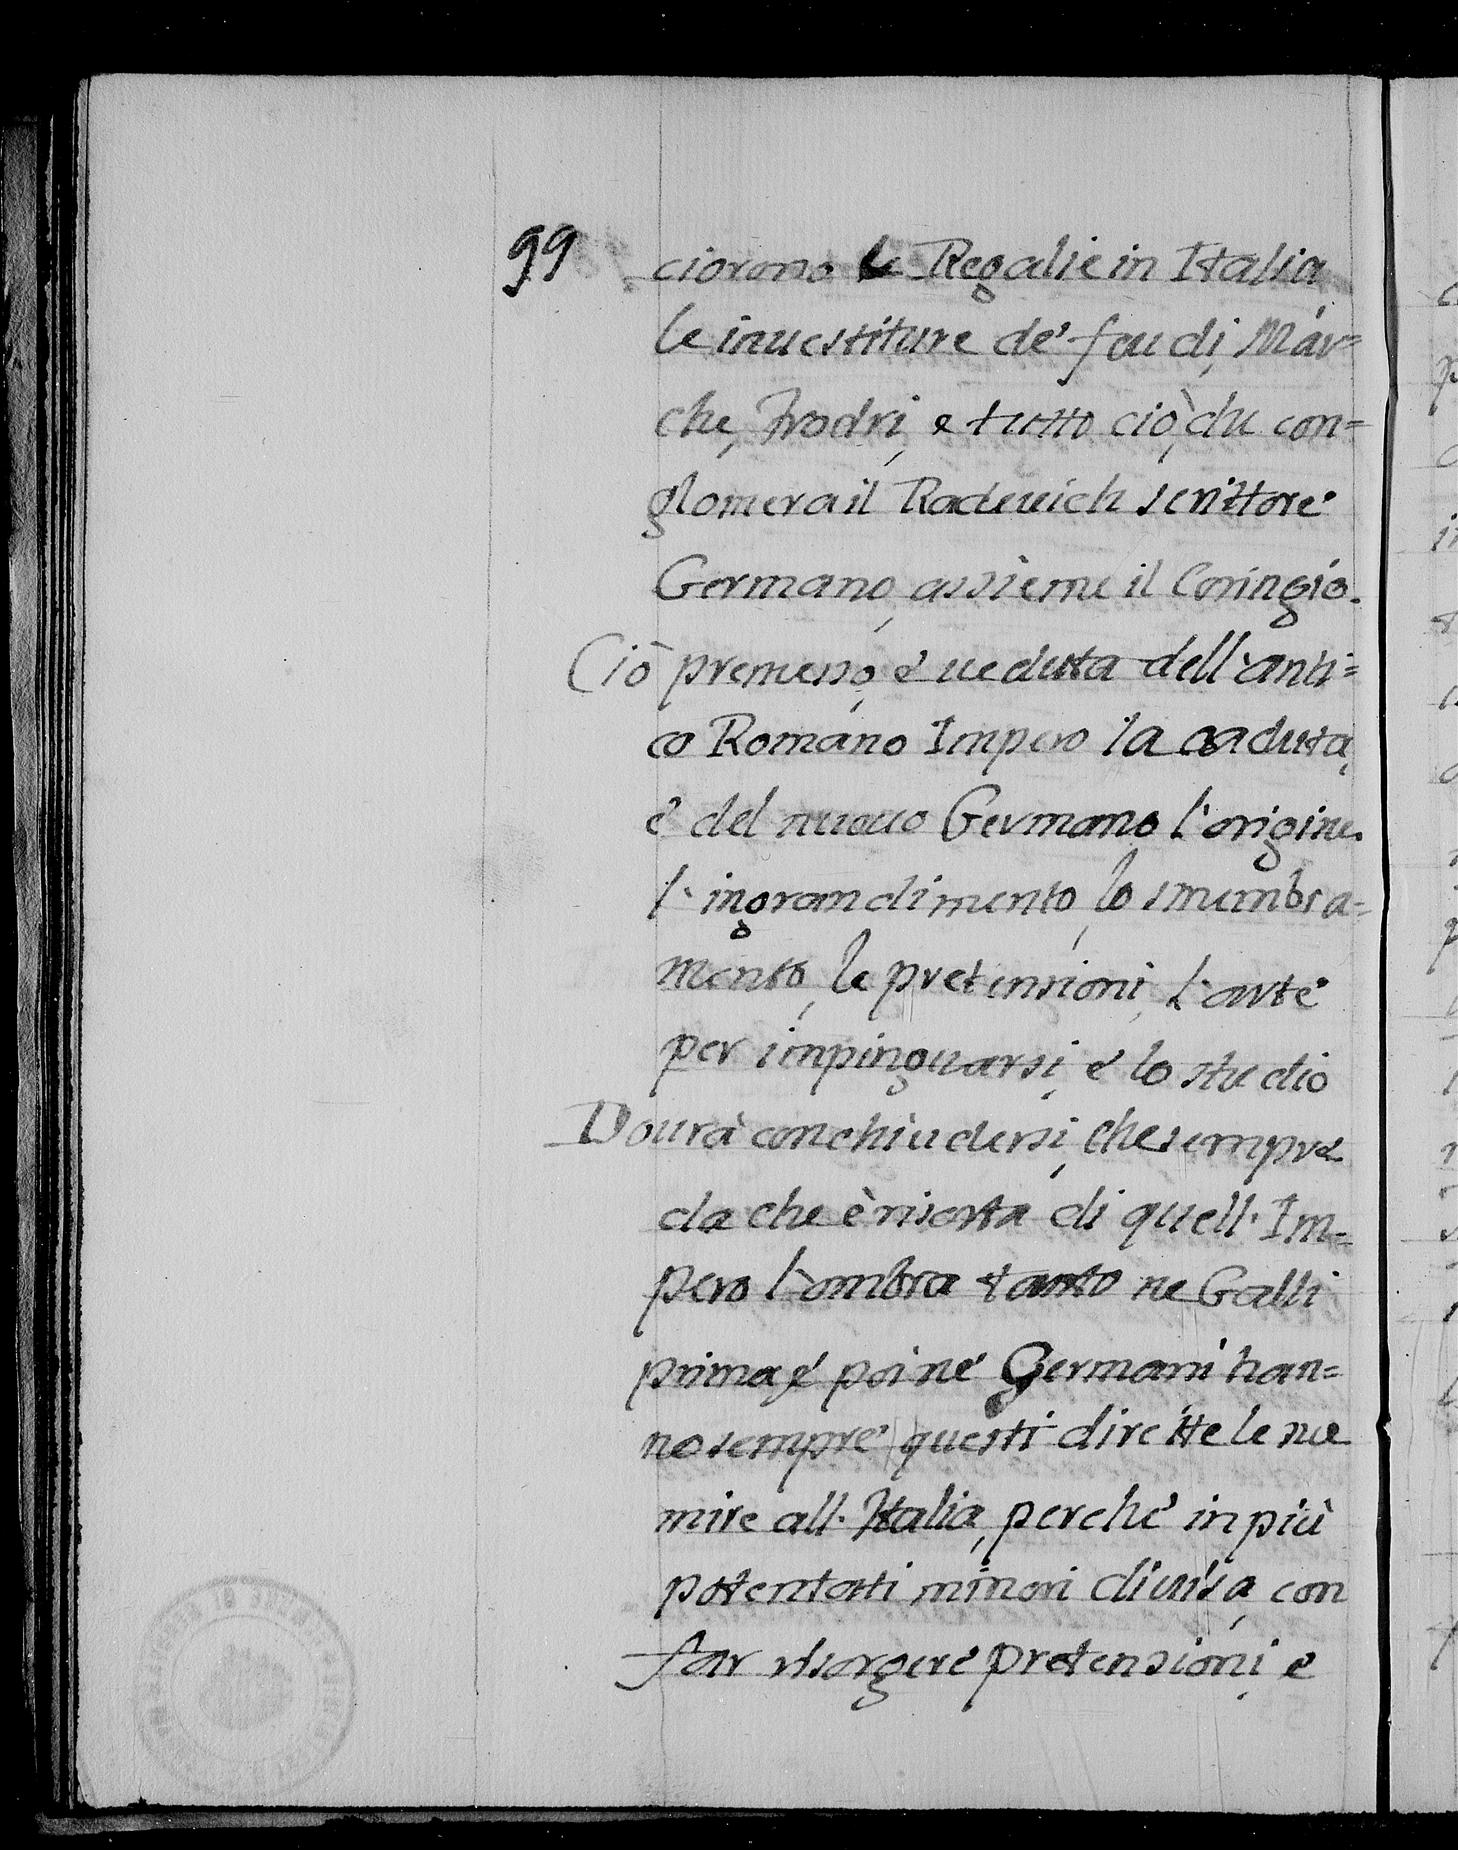 99
ciorono le Regalie in Italia
le inuestiture de' feudi, Mar=
che, Frodri, e tutto ciò, che con=
glomera il Radeuich scrittore
Germano, assieme il Coringio.
Ciò premesso, e ueduta dell'anti=
co Romano Impero la caduta,
e del nuouo Germano l'origine
l'ingrandimento, lo smembra=
mento, le pretensioni, l'arte
per impinguarsi, e lo studio
Dourà conchiudersi, che sempre
da che è risorta di quell'Im=
pero l'ombra tanto ne Galli
prima, e poi ne Germani han=
no sempre questi dirette le sue
mire all'Italia, perche in più
potentatti minori diuisa, con
far risorgere pretensioni, e